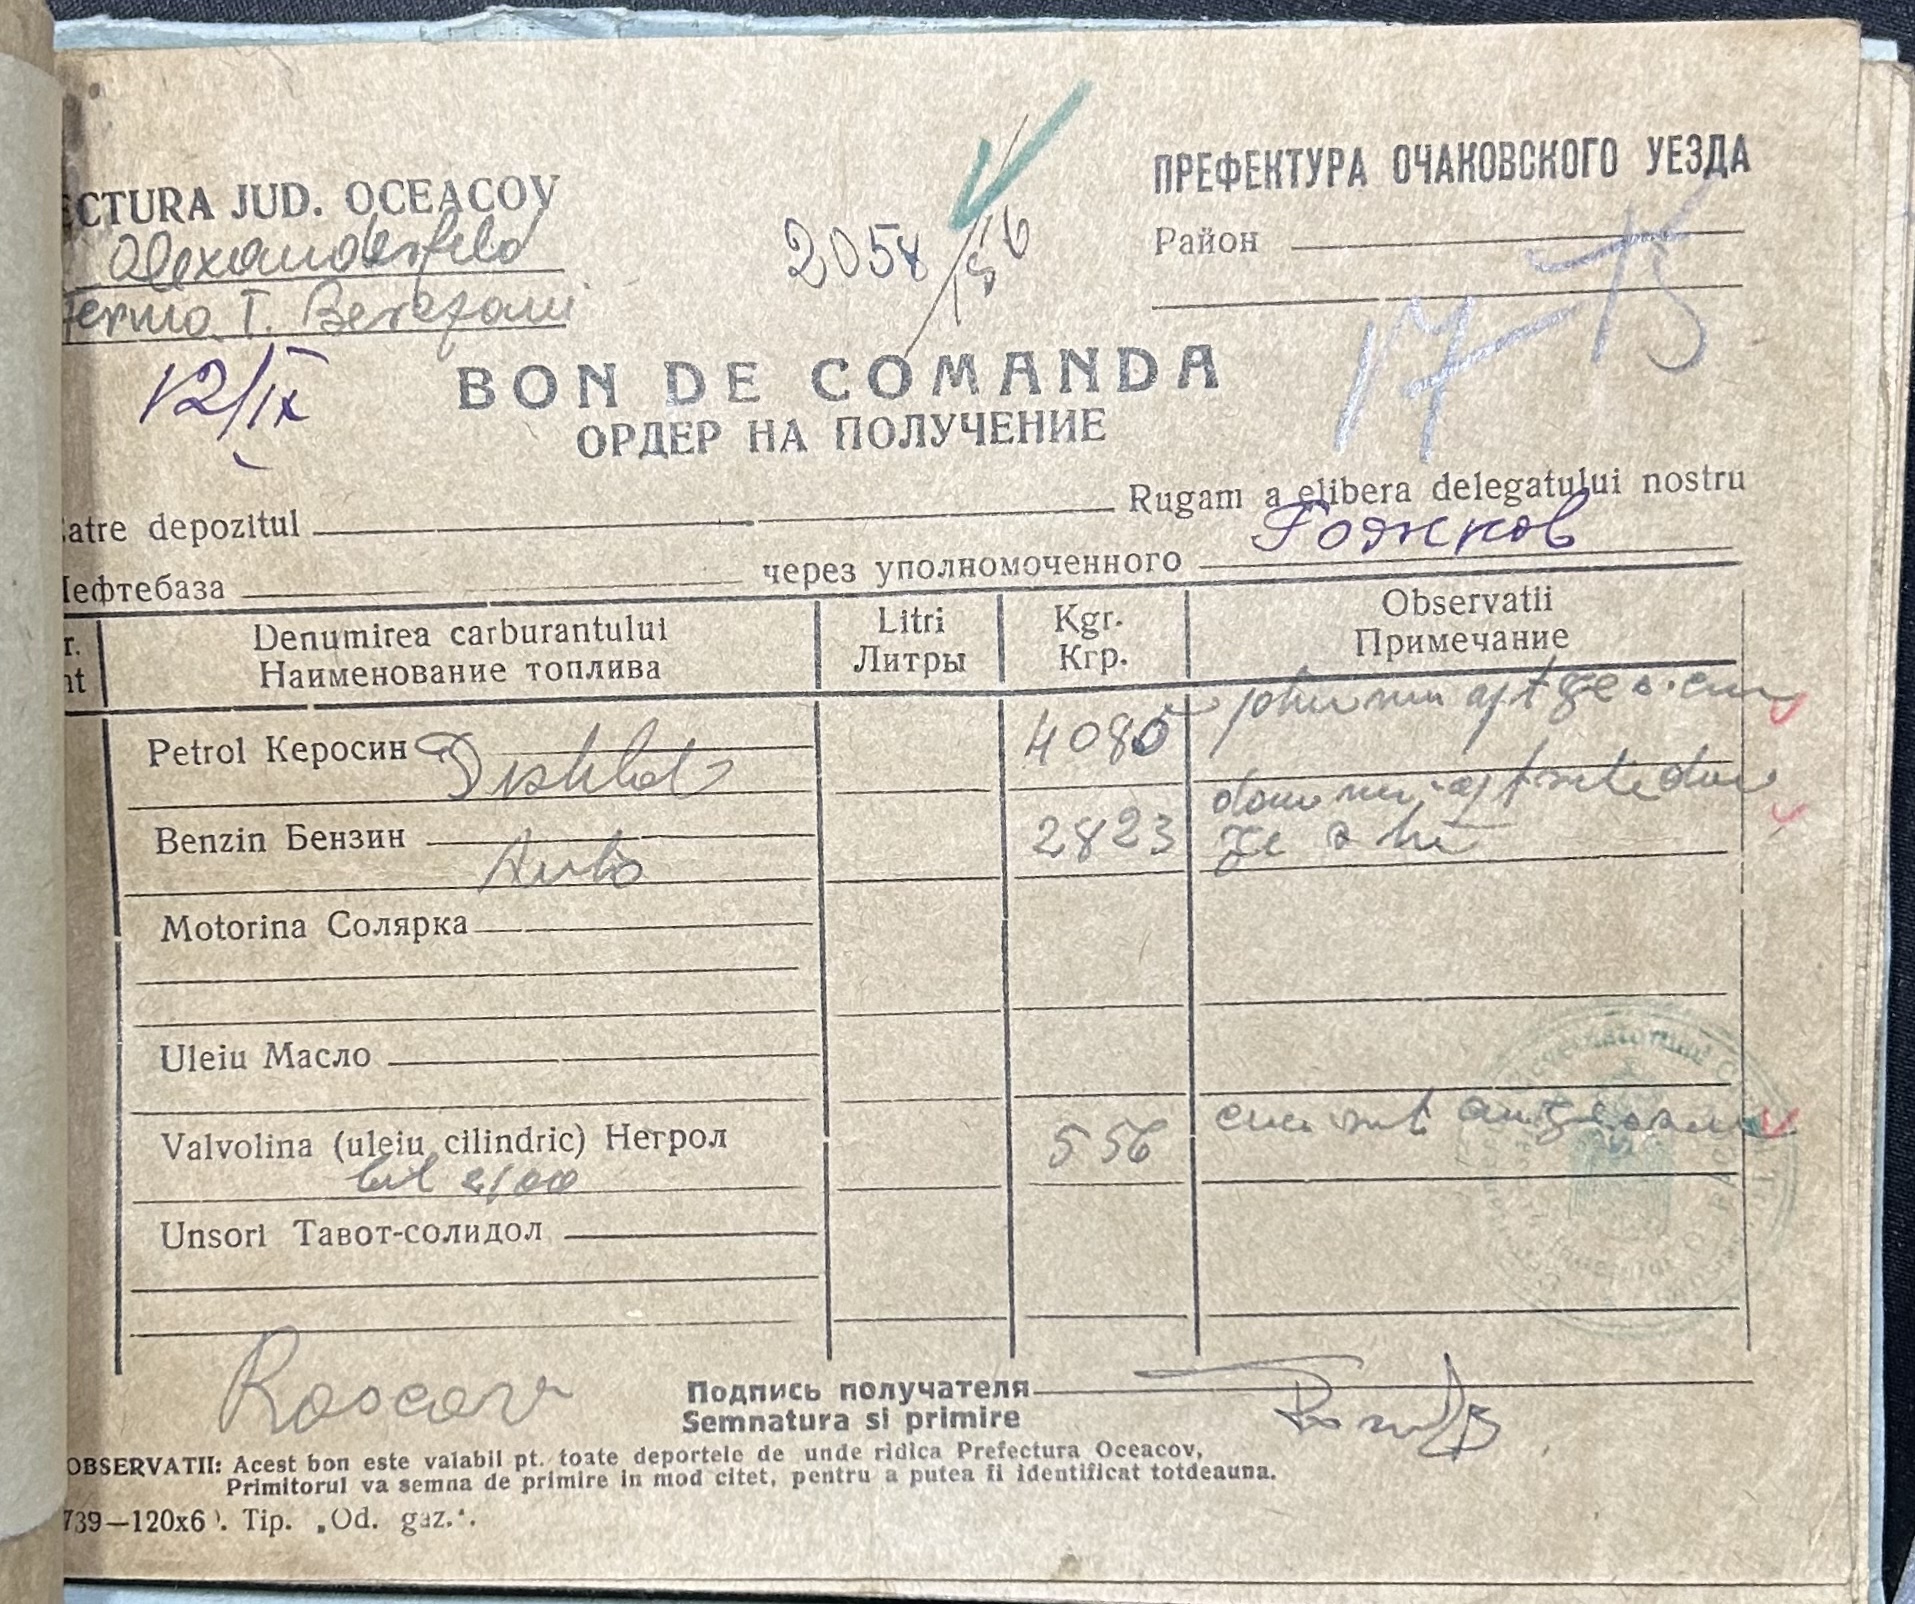 ECTURA JUD. OCEACOV
ПРЕФЕКТУРА ОЧАКОВСКОГО УЕЗДА
Alexanderfeld
Район
Ferma T. Berezani
2058/56
12/IX
17-75
BON DE COMANDA
ОРДЕР НА ПОЛУЧЕНИЕ
atre depozitul Rugam a elibera delegatului nostru
ефтебаза через уполномоченного
r. Denumirea carburantului Litri Kgr. Observatii
nt Наименование топлива Литры Кгр. Примечание
Petrol Керосин 4080
Benzin Бензин 2823
Auto
Motorina Солярка
Uleiu Масло
Valvolina (uleiu cilindric) Негрол 556
Unsori Тавот-солидол
Roscov
Подпись получателя
Semnatura si primire
OBSERVATII: Acest bon este valabil pt. toate deportele de unde ridica Prefectura Oceacov,
Primitorul va semna de primire in mod citet, pentru a putea fi identificat totdeauna.
739—120x6 ). Tip. „Od. gaz.“.